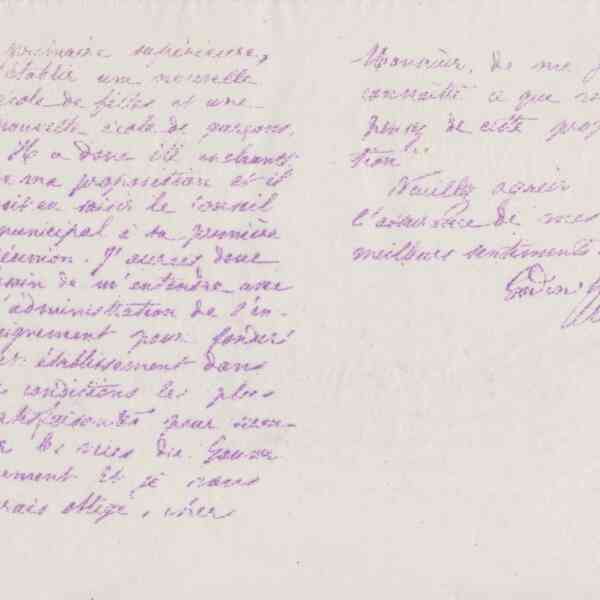 primaire supérieure,
établir une nouvelle
école de filles et une
nouvelle école de garçons.
Il a donc été enchanté
de ma proposition et il
saisir le Conseil
municipal à sa première
réunion. J'aurais donc
besoin de m'entendre avec
l'administration de l'en-
seignement pour fonder
établissement dans
conditions les plus
satisfaisantes pour
les vues du Gouver
nement et je vous
serais obligé, cher
Monsieur, de me
connaître ce que
pensez de cette
tion
Veuillez agréer
l'assurance de mes
meilleurs sentiments.